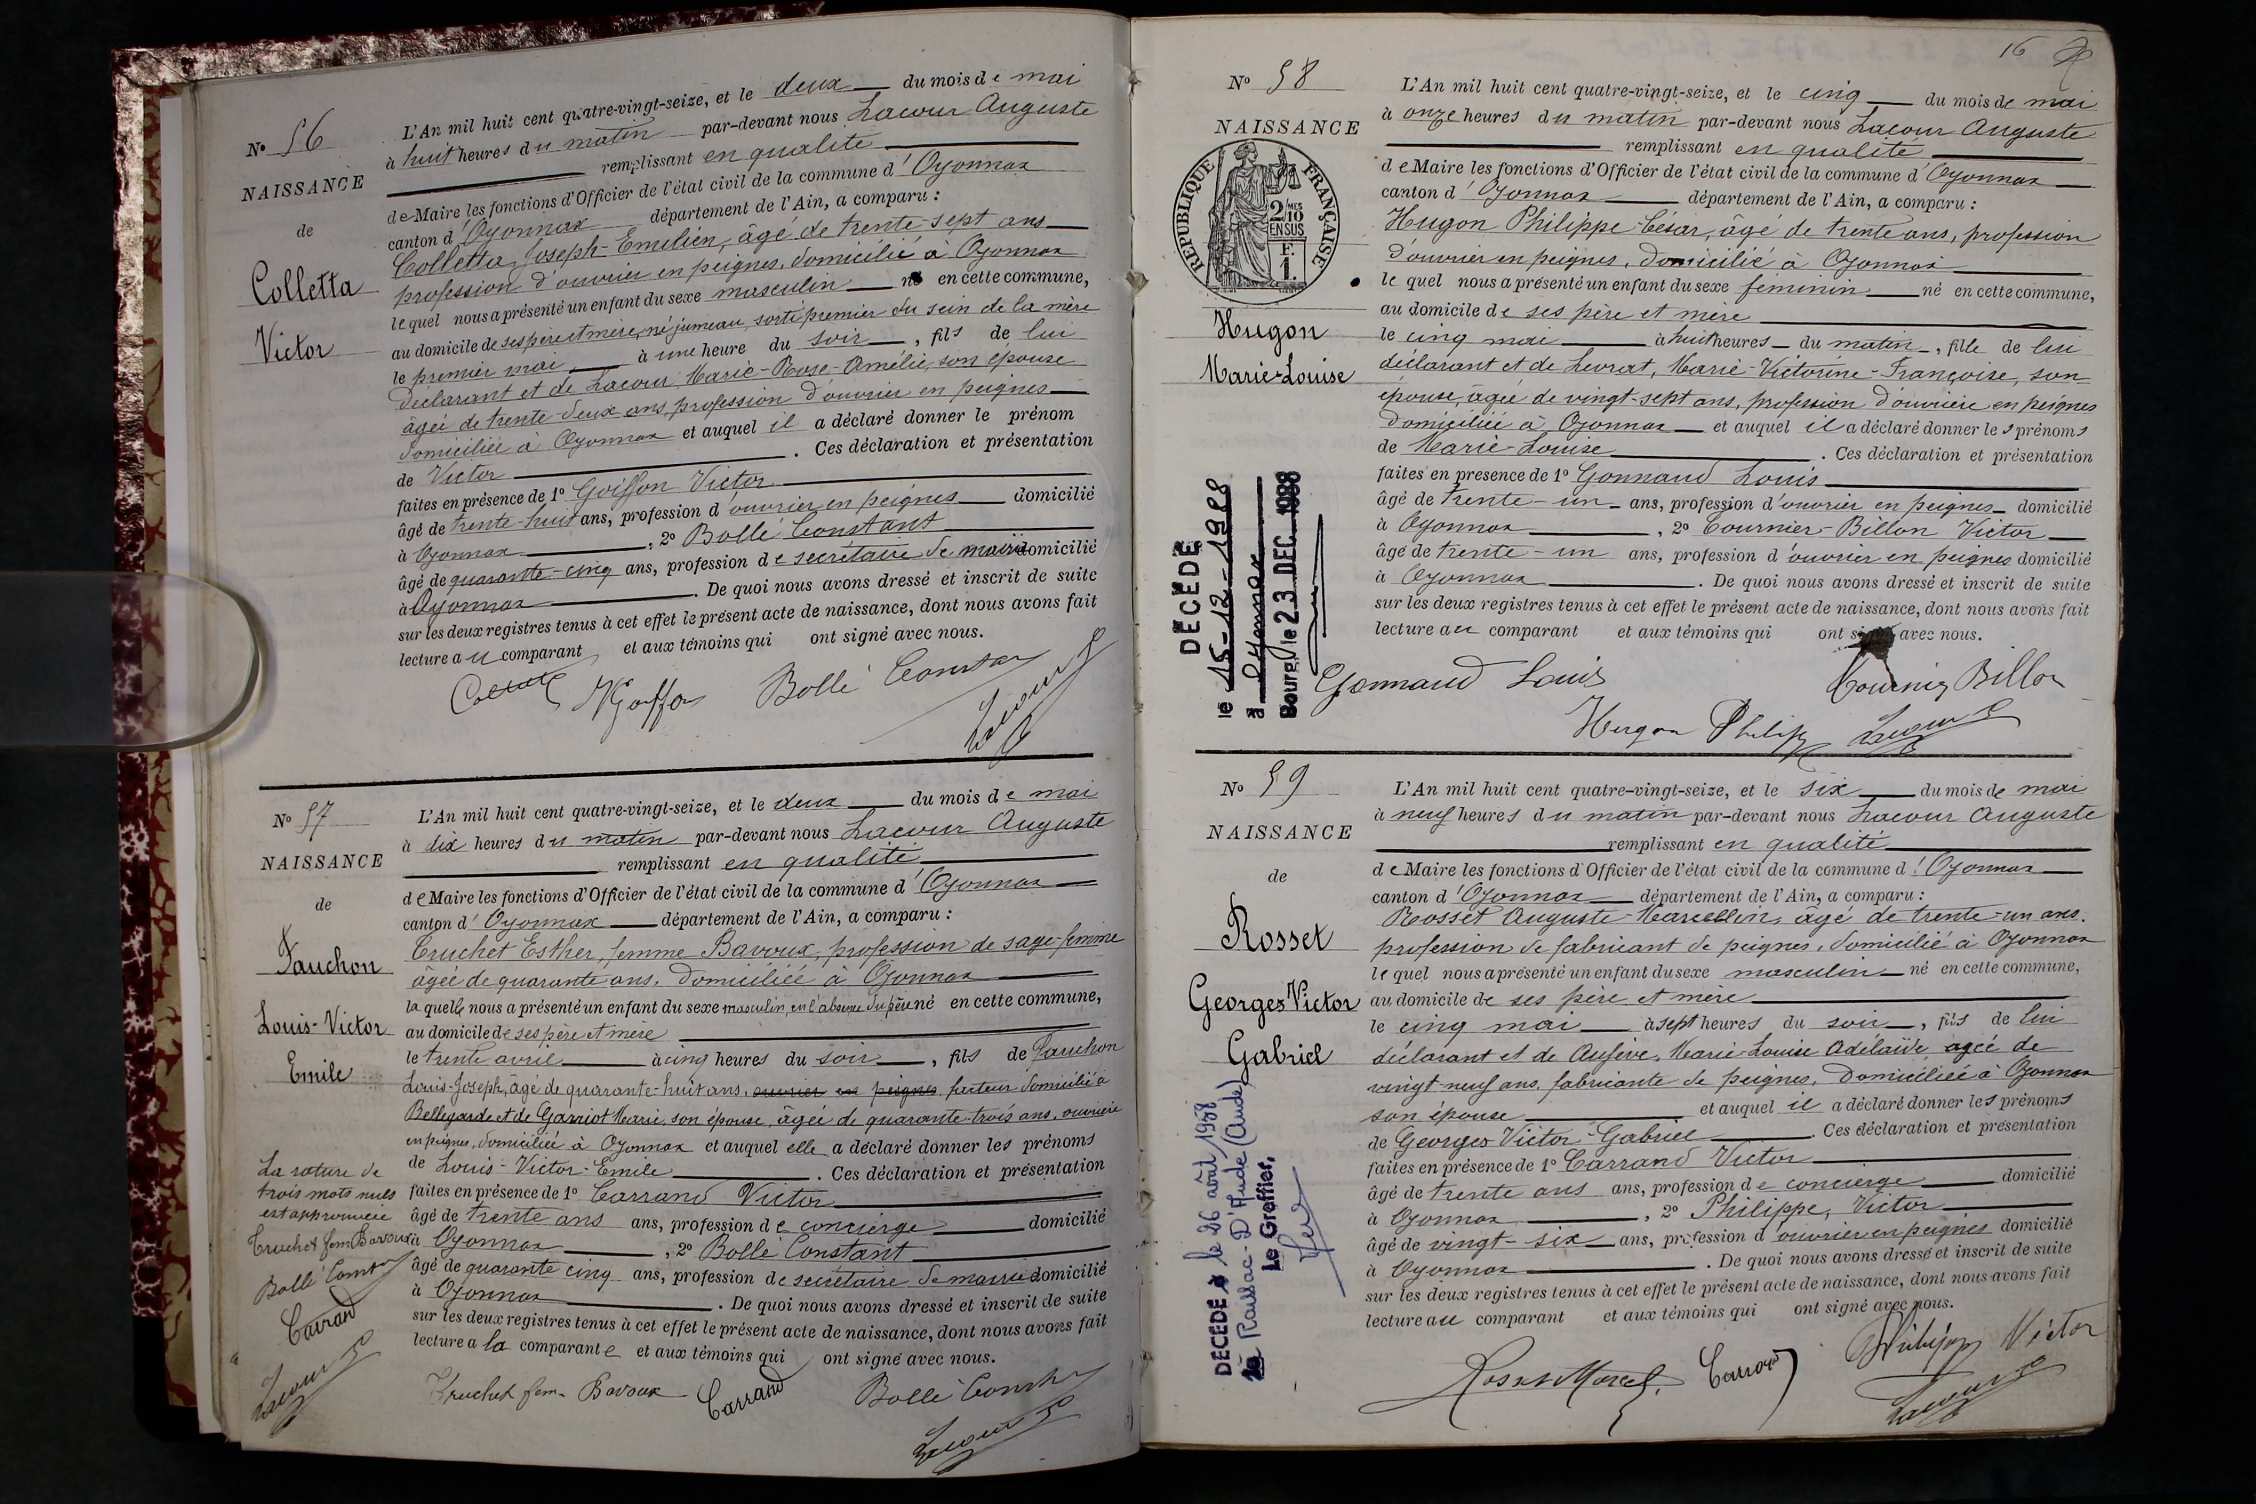 No 56
NAISSANCE
de
Colletta
Victor
L'An mil huit cent quatre-vingt-seize, et le deux du mois de mai
à huit heures du matin par-devant nous Lacour Auguste
remplissant en qualité
de Maire les fonctions d'Officier de l'état civil de la commune d'Oyonnax
canton d'Oyonnax département de l'Ain, a comparu :
Colletta Joseph-Emilien, âgé de trente-sept ans
profession d'ouvrier en peignes, domicilié à Oyonnax
lequel nous a présenté un enfant du sexe masculin né en cette commune,
au domicile de ses père et mère, né jumeau, sorti premier du sein de la mère
le premier mai, à une heure du soir, fils de lui
déclarant et de Lacour, Marie-Rose-Amélie, son épouse
âgée de trente-deux ans, profession d'ouvrier en peignes
domiciliée à Oyonnax et auquel il a déclaré donner le prénom
de Victor. Ces déclaration et présentation
faites en présence de 1º Goiffon Victor
âgé de trente-huit ans, profession d'ouvrier en peignes domicilié
à Oyonnax, 2º Bollé Constant
âgé de quarante-cinq ans, profession de secrétaire de mairie domicilié
à Oyonnax. De quoi nous avons dressé et inscrit de suite
sur les deux registres tenus à cet effet le présent acte de naissance, dont nous avons fait
lecture au comparant et aux témoins qui ont signé avec nous.
Bollé Constant
Lacour
No 57
NAISSANCE
de
Fauchon
Louis-Victor
Emile
L'An mil huit cent quatre-vingt-seize, et le deux du mois de mai
à dix heures du matin par-devant nous Lacour Auguste
remplissant en qualité
de Maire les fonctions d'Officier de l'état civil de la commune d'Oyonnax
canton d'Oyonnax département de l'Ain, a comparu :
Truchet Esther, femme Bavoux, profession de sage-femme
âgée de quarante ans, domiciliée à Oyonnax
laquelle nous a présenté un enfant du sexe masculin, en l'absence du père né en cette commune,
au domicile de ses père et mère
le trente avril à cinq heures du soir, fils de Fauchon
Louis-Joseph, âgé de quarante-huit ans, ouvrier en peignes, facteur domicilié à
Bellegarde et de Garriot Marie, son épouse, âgée de quarante-trois ans, ouvrière
en peignes, domiciliée à Oyonnax et auquel elle a déclaré donner les prénoms
de Louis-Victor-Emile. Ces déclaration et présentation
faites en présence de 1º Carrand Victor
âgé de trente ans ans, profession de concierge domicilié
à Oyonnax, 2º Bollé Constant
âgé de quarante cinq ans, profession de secrétaire de mairie domicilié
à Oyonnax. De quoi nous avons dressé et inscrit de suite
sur les deux registres tenus à cet effet le présent acte de naissance, dont nous avons fait
lecture a la comparante et aux témoins qui ont signé avec nous.
La rature de
trois mots nuls
est approuvée
Truchet fem Bavoux
Bollé Constant
Carrand
Lacour
Truchet fem Bavoux Carrand Bollé Constant
Lacour
16
No 58
NAISSANCE
RÉPUBLIQUE FRANÇAISE
2 MES
10
EN SUS
F.
1.
Hugon
Marie-Louise
L'An mil huit cent quatre-vingt-seize, et le cinq du mois de mai
à onze heures du matin par-devant nous Lacour Auguste
remplissant en qualité
de Maire les fonctions d'Officier de l'état civil de la commune d'Oyonnax
canton d'Oyonnax département de l'Ain, a comparu :
Hugon Philippe-César, âgé de trente ans, profession
d'ouvrier en peignes, domicilié à Oyonnax
lequel nous a présenté un enfant du sexe féminin né en cette commune,
au domicile de ses père et mère
le cinq mai à huit heures du matin, fille de lui
déclarant et de Levrat, Marie-Victorine-Françoise, son
épouse, âgée de vingt-sept ans, profession d'ouvrière en peignes
domiciliée à Oyonnax et auquel il a déclaré donner les prénoms
de Marie-Louise. Ces déclaration et présentation
faites en présence de 1º Gonnand Louis
âgé de trente-un ans, profession d'ouvrier en peignes domicilié
à Oyonnax, 2º Tournier-Billon Victor
âgé de trente-un ans, profession d'ouvrier en peignes domicilié
à Oyonnax. De quoi nous avons dressé et inscrit de suite
sur les deux registres tenus à cet effet le présent acte de naissance, dont nous avons fait
lecture au comparant et aux témoins qui ont signé avec nous.
DÉCÉDÉE
le 15-12-1988
à Oyonnax
Bourg, le 23 DEC. 1988
Gonnand Louis Tournier Billon
Hugon Philippe Lacour
No 59
NAISSANCE
de
Rosset
Georges Victor
Gabriel
L'An mil huit cent quatre-vingt-seize, et le six du mois de mai
à neuf heures du matin par-devant nous Lacour Auguste
remplissant en qualité
de Maire les fonctions d'Officier de l'état civil de la commune d'Oyonnax
canton d'Oyonnax département de l'Ain, a comparu :
Rosset Auguste-Marcellin, âgé de trente-un ans,
profession de fabricant de peignes, domicilié à Oyonnax
lequel nous a présenté un enfant du sexe masculin né en cette commune,
au domicile de ses père et mère
le cinq mai à sept heures du soir, fils de lui
déclarant et de Aufère, Marie-Louise Adélaïde, agée de
vingt-neuf ans, fabricante de peignes, domiciliée à Oyonnax
son épouse et auquel il a déclaré donner les prénoms
de Georges Victor-Gabriel. Ces déclaration et présentation
faites en présence de 1º Carrand Victor
âgé de trente ans ans, profession de concierge domicilié
à Oyonnax, 2º Philippe, Victor
âgé de vingt-six ans, profession d'ouvrier en peignes domicilié
à Oyonnax. De quoi nous avons dressé et inscrit de suite
sur les deux registres tenus à cet effet le présent acte de naissance, dont nous avons fait
lecture au comparant et aux témoins qui ont signé avec nous.
DÉCÉDÉ le 26 août 1958
à Raissac-D'Aude (Aude)
Le Greffier,
Rosset Marcel Carrand Philippe Victor
Lacour